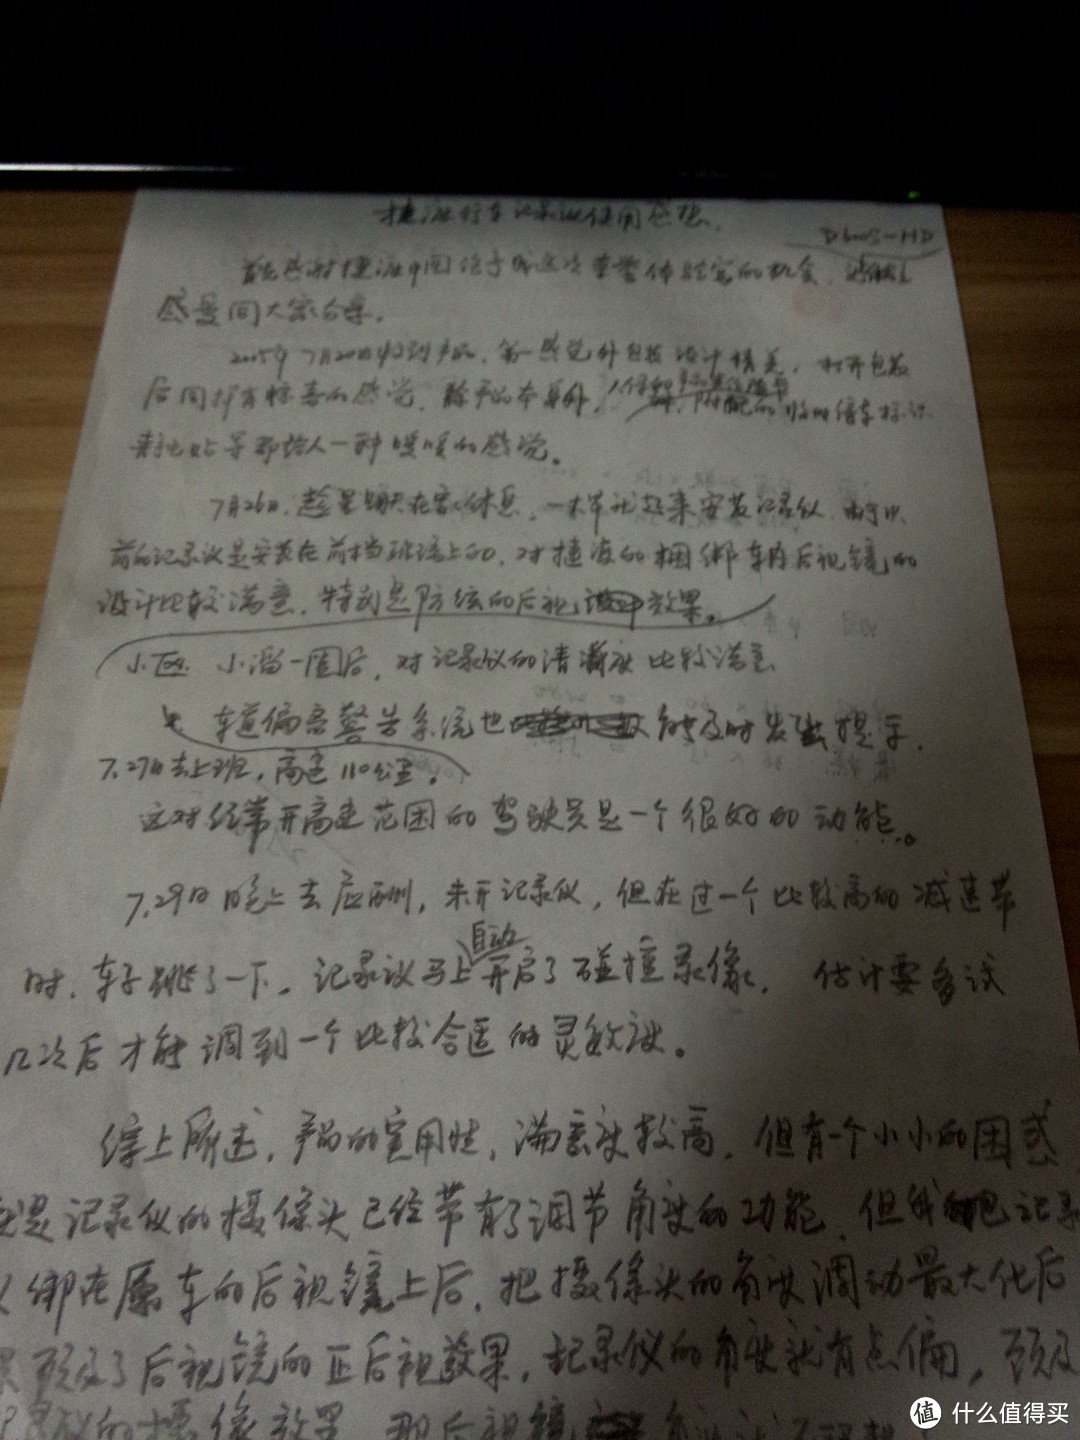 捷渡行车记录仪使用感想.
D600S-HD
首先感谢捷渡中国给予我这次荣誉体验官的机会,
感受同大家分享.
2015年7月20日收到产品,第一感觉外包装设计精美,打开包装
后同样有惊喜的感觉,除产品本身外, 附配的临时停车标识
车贴等都给人一种暖暖的感觉。
7月26日,趁星期天在家休息,一大早就起来安装记录仪,由于以
前的记录仪是安装在前档玻璃上的,对捷渡的捆绑车内后视镜的
设计比较满意,特别是防炫的后视 效果。
小区 小溜一圈后,对记录仪的清晰度比较满意
车道偏离警告系统也 能及时发出提示,
7.27日去上班,高速110公里,
这对经常开高速范围的驾驶员是一个很好的功能。
7.29日晚上去应酬,未开记录仪,但在过一个比较高的减速带
时,车子跳了一下,记录议马上自动开启了碰撞录像, 估计要多试
几次后才能调到一个比较合适的灵敏度。
综上所述,产品的实用性,满意度较高,但有一个小小的困惑
就是记录仪的摄像头已经带有了调节角度的功能,但我把记录
仪绑在原车的后视镜上后,把摄像头的角度调动最大化后
顾及了后视镜的正后视效果,记录仪的角度就有点偏,顾及
记录仪的摄像效果,那后视镜
值 什么值得买